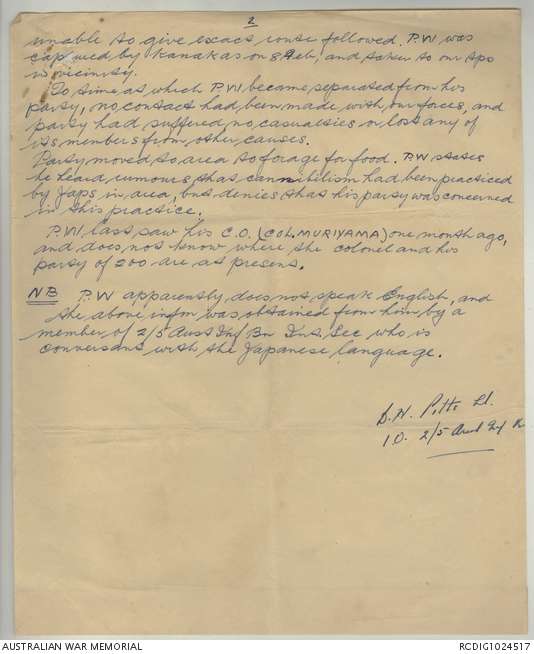 2
unable to give exact route followed. P.W was
captured by Kanakas on 8 Feb, and taken to our tps
in vicinity.
To time at which P.W became separated from his
party, no contact had been made with our forces, and
party had suffered no casualties or lost any of
its members from other causes.
Party moved to area to forage for food. P.W states
he heard rumours that cannibilism had been practiced
by Japs in area, but denies that his party was concerned
in this practice.
P.W last saw his C.O. (COL. MURIYAMA) one month ago,
and does not know where the colonel and his
party of 200 are at present.
NB P.W apparently does not speak English, and
the above infm was obtained from him by a
member of 2/5 Aust Inf Bn Int. Sec who is
conversant with the Japanese language.
D.N. Potts Lt.
I O. 2/5 Aust Inf
AUSTRALIAN WAR MEMORIAL
RCDIG1024517